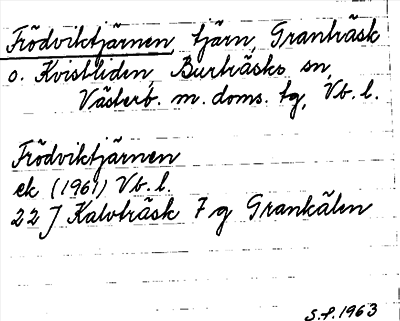 Frödviktjärnen, tjärn, Granträsk
o. Kvistliden, Burträsks sn,
Västerb. m. doms. tg, Vb. l.
Frödviktjärnen
ek (1961) Vb. l.
22 J Kalvträsk 7 g Grankälen
S.f. 1963